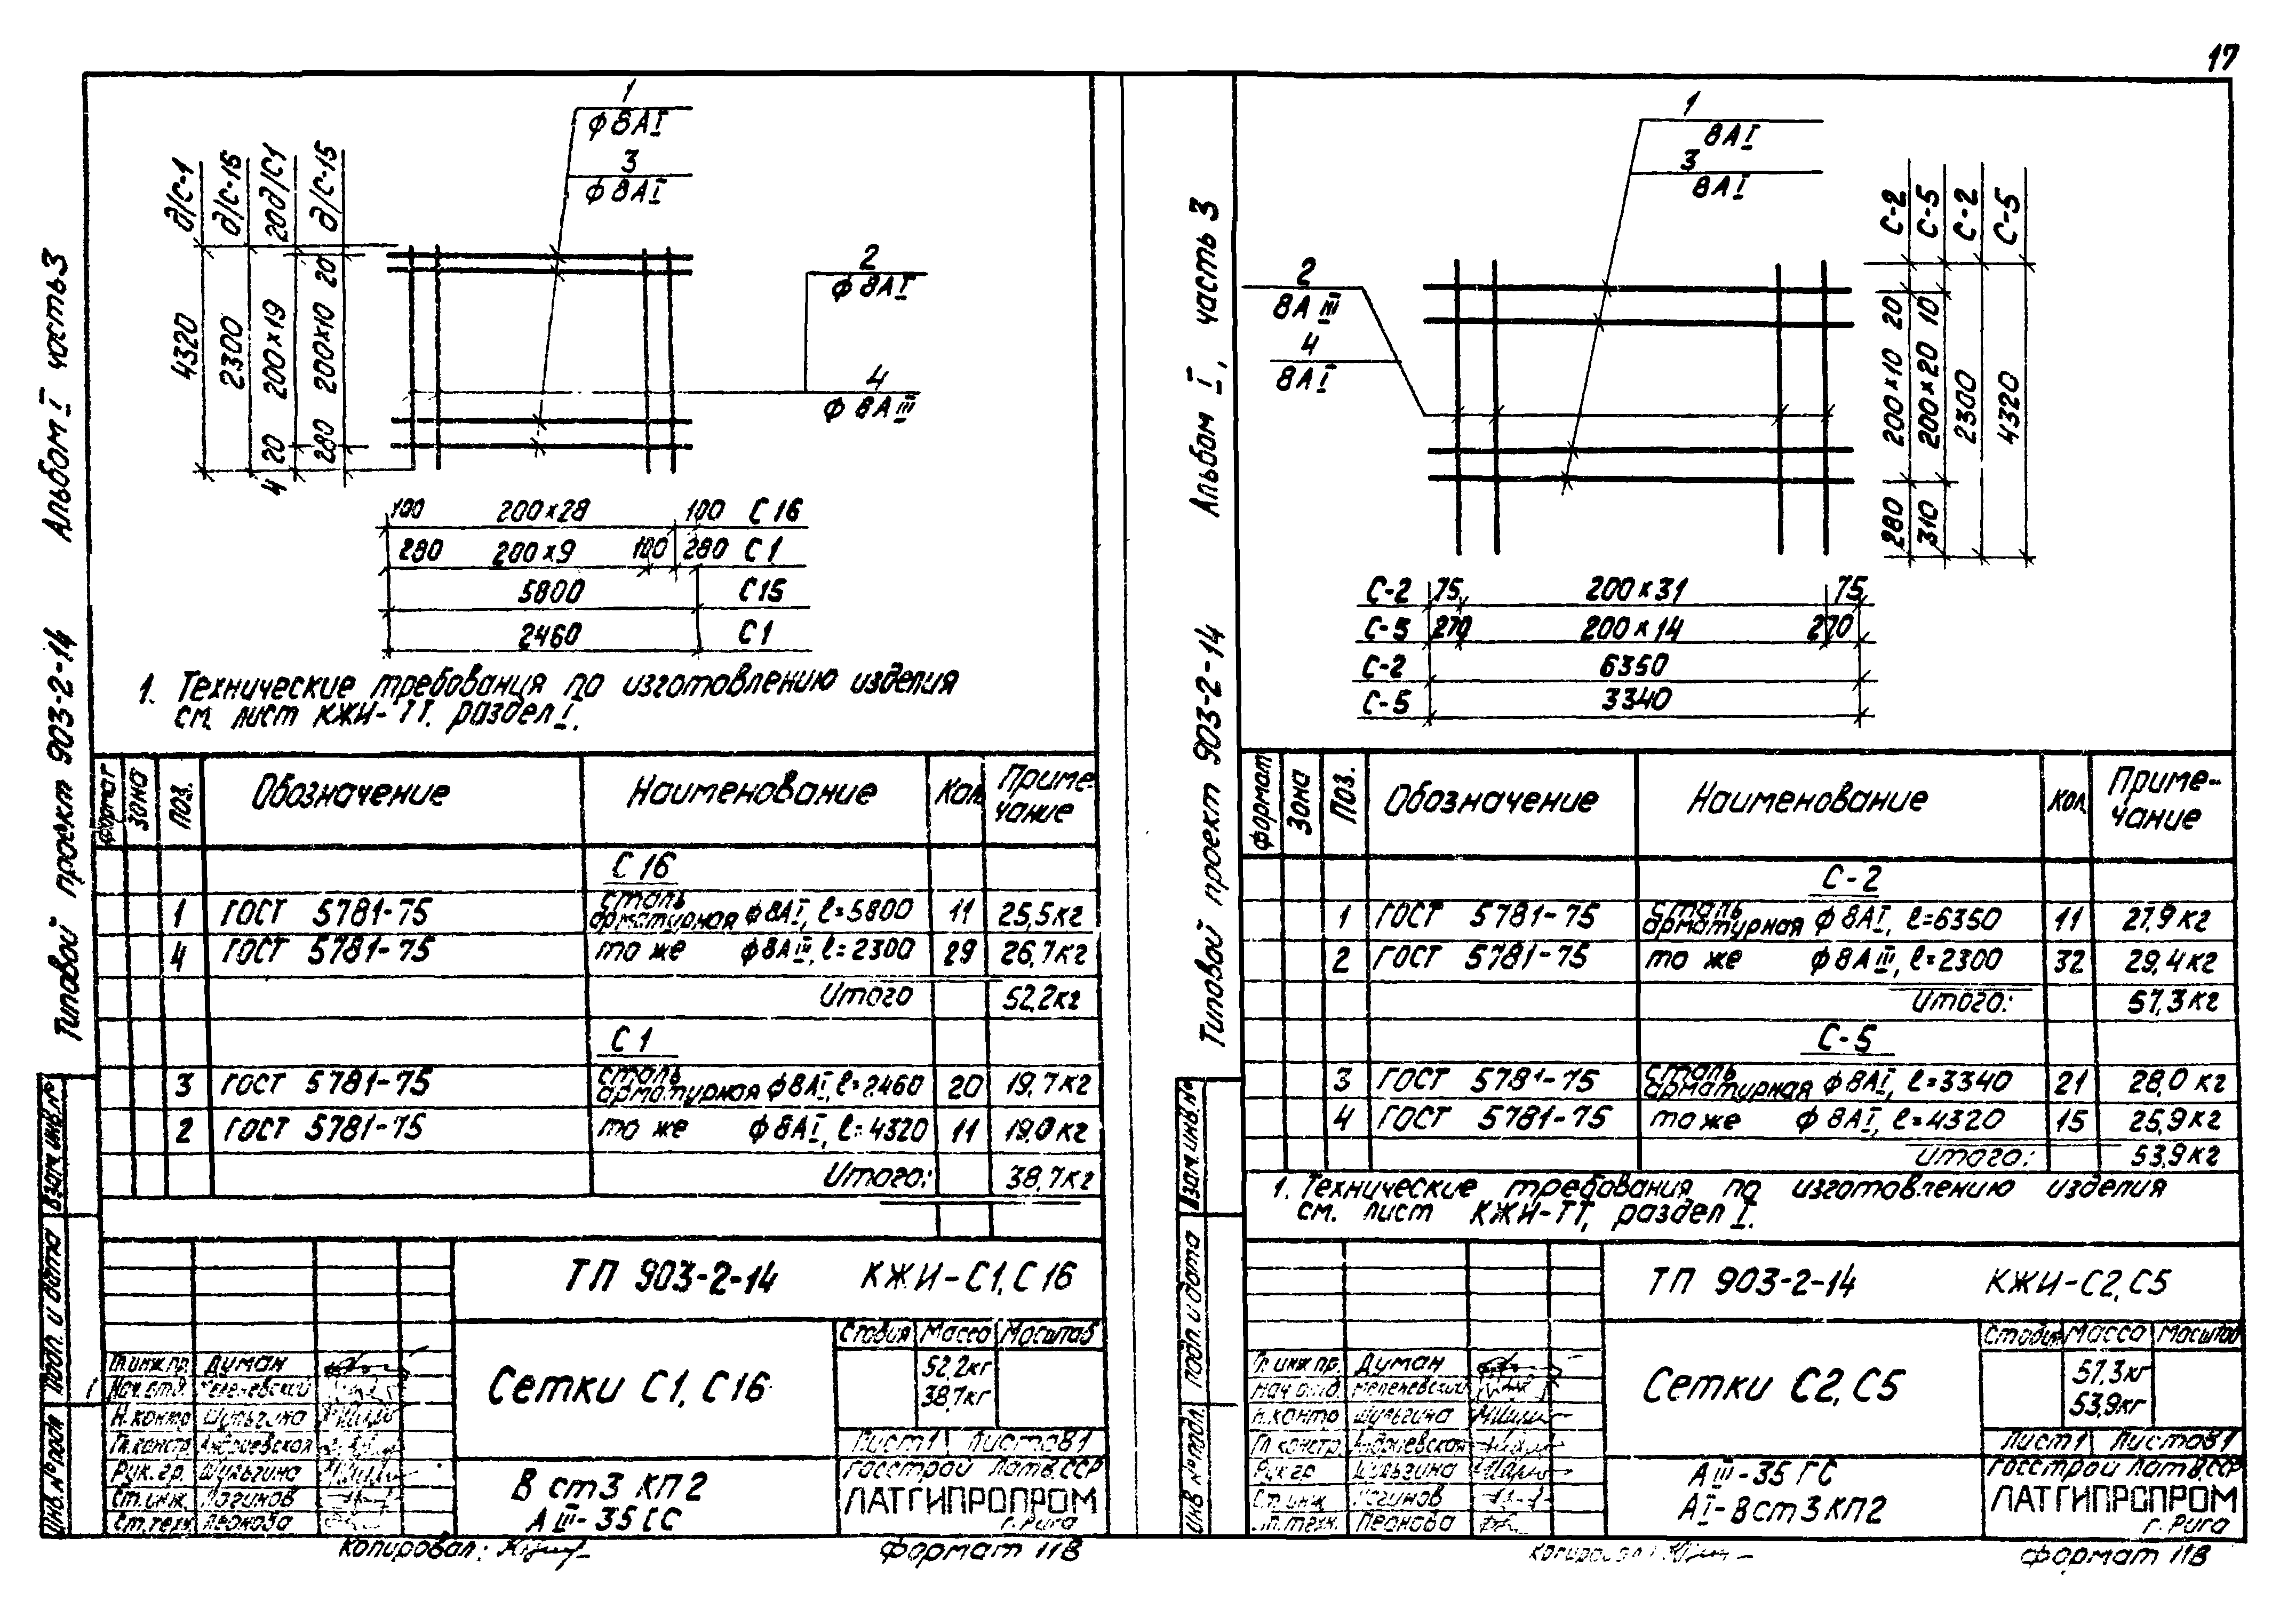 17
Альбом I часть 3
Типовой проект 903-2-14
д/С-1
д/С-15
20д/С1
д/С-15
4320
2300
20 200×19
4
280 200×10 20
1
ф8АI
3
ф8АI
2
ф8АI
4
ф8АIII
100 200×28 100 С16
280 200×9 100 280 С1
5800 С15
2460 С1
1. Технические требования по изготовлению изделия
см. лист КЖИ-ТТ. раздел I.
формат зона поз. Обозначение Наименование Кол. Приме-
чание
С16
1 ГОСТ 5781-75 сталь арматурная ф8АI, ℓ=5800 11 25,5кг
4 ГОСТ 5781-75 то же ф8АIII, ℓ=2300 29 26,7кг
Итого 52,2кг
С1
3 ГОСТ 5781-75 сталь арматурная ф8АI, ℓ=2460 20 19,7кг
2 ГОСТ 5781-75 то же ф8АI, ℓ=4320 11 19,0кг
Итого: 38,7кг
Инв.№подл Подп. и дата Взам.инв.№
ТП 903-2-14 КЖИ-С1,С16
Стадия Масса Масштаб
52,2кг
38,7кг
Сетки С1, С16
Лист 1 Листов 1
Гл.инж.пр. Думан
Нач.отд.
Н.контр Шульгина
Гл.констр. Андриевская
Рук.гр. Шульгина
Ст.инж. Логинов
Ст.техн. Леонова
В ст3 КП2
А III-35ГС
Госстрой Латв.ССР
ЛАТГИПРОПРОМ
г. Рига
Копировал:
формат 11В
Альбом I, часть 3
Типовой проект 903-2-14
1
8АI
3
8АI
2
8А III
4
8АI
С-2
С-5
С-2
С-5
280 200×10 20
310 200×20 10
2300
4320
С-2 75 200×31 75
С-5 270 200×14 270
С-2 6350
С-5 3340
формат Зона Поз. Обозначение Наименование Кол Приме-
чание
С-2
1 ГОСТ 5781-75 сталь арматурная ф8АI, ℓ=6350 11 27,9кг
2 ГОСТ 5781-75 то же ф8АIII, ℓ=2300 32 29,4кг
Итого: 57,3кг
С-5
3 ГОСТ 5781-75 сталь арматурная ф8АI, ℓ=3340 21 28,0 кг
4 ГОСТ 5781-75 то же ф8АI, ℓ=4320 15 25,9кг
Итого: 53,9кг
1. Технические требования по изготовлению изделия
см. лист КЖИ-ТТ, раздел I.
Инв №подл. подп. и дата Взам.инв.№
ТП 903-2-14 КЖИ-С2,С5
Стадия Масса Масштаб
57.3кг
53,9кг
Сетки С2, С5
Лист 1 Листов 1
Гл.инж.пр. Думан
Нач.отд.
Н.контр Шульгина
Гл.констр. Андриевская
Рук.гр Шульгина
Ст.инж Логинов
Ст.техн. Леонова
А III-35ГС
АI-Вст3КП2
Госстрой Латв.ССР
ЛАТГИПРОПРОМ
г. Рига
Копировал:
формат 11В